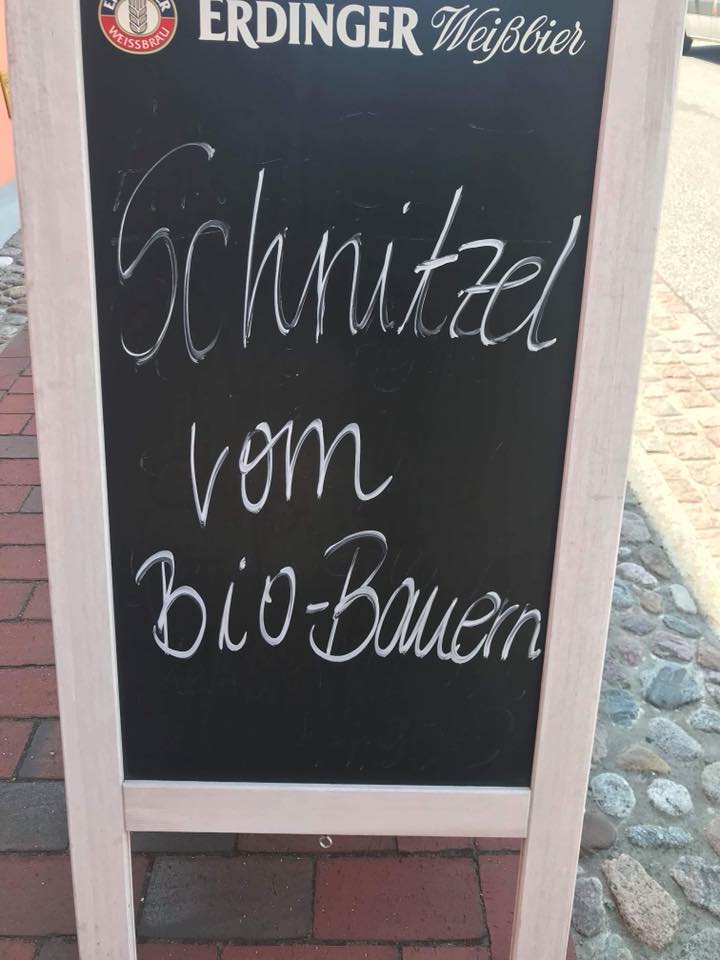 ERDINGER Weißbier
WEISSBRÄU
Schnitzel
vom
Bio-Bauern